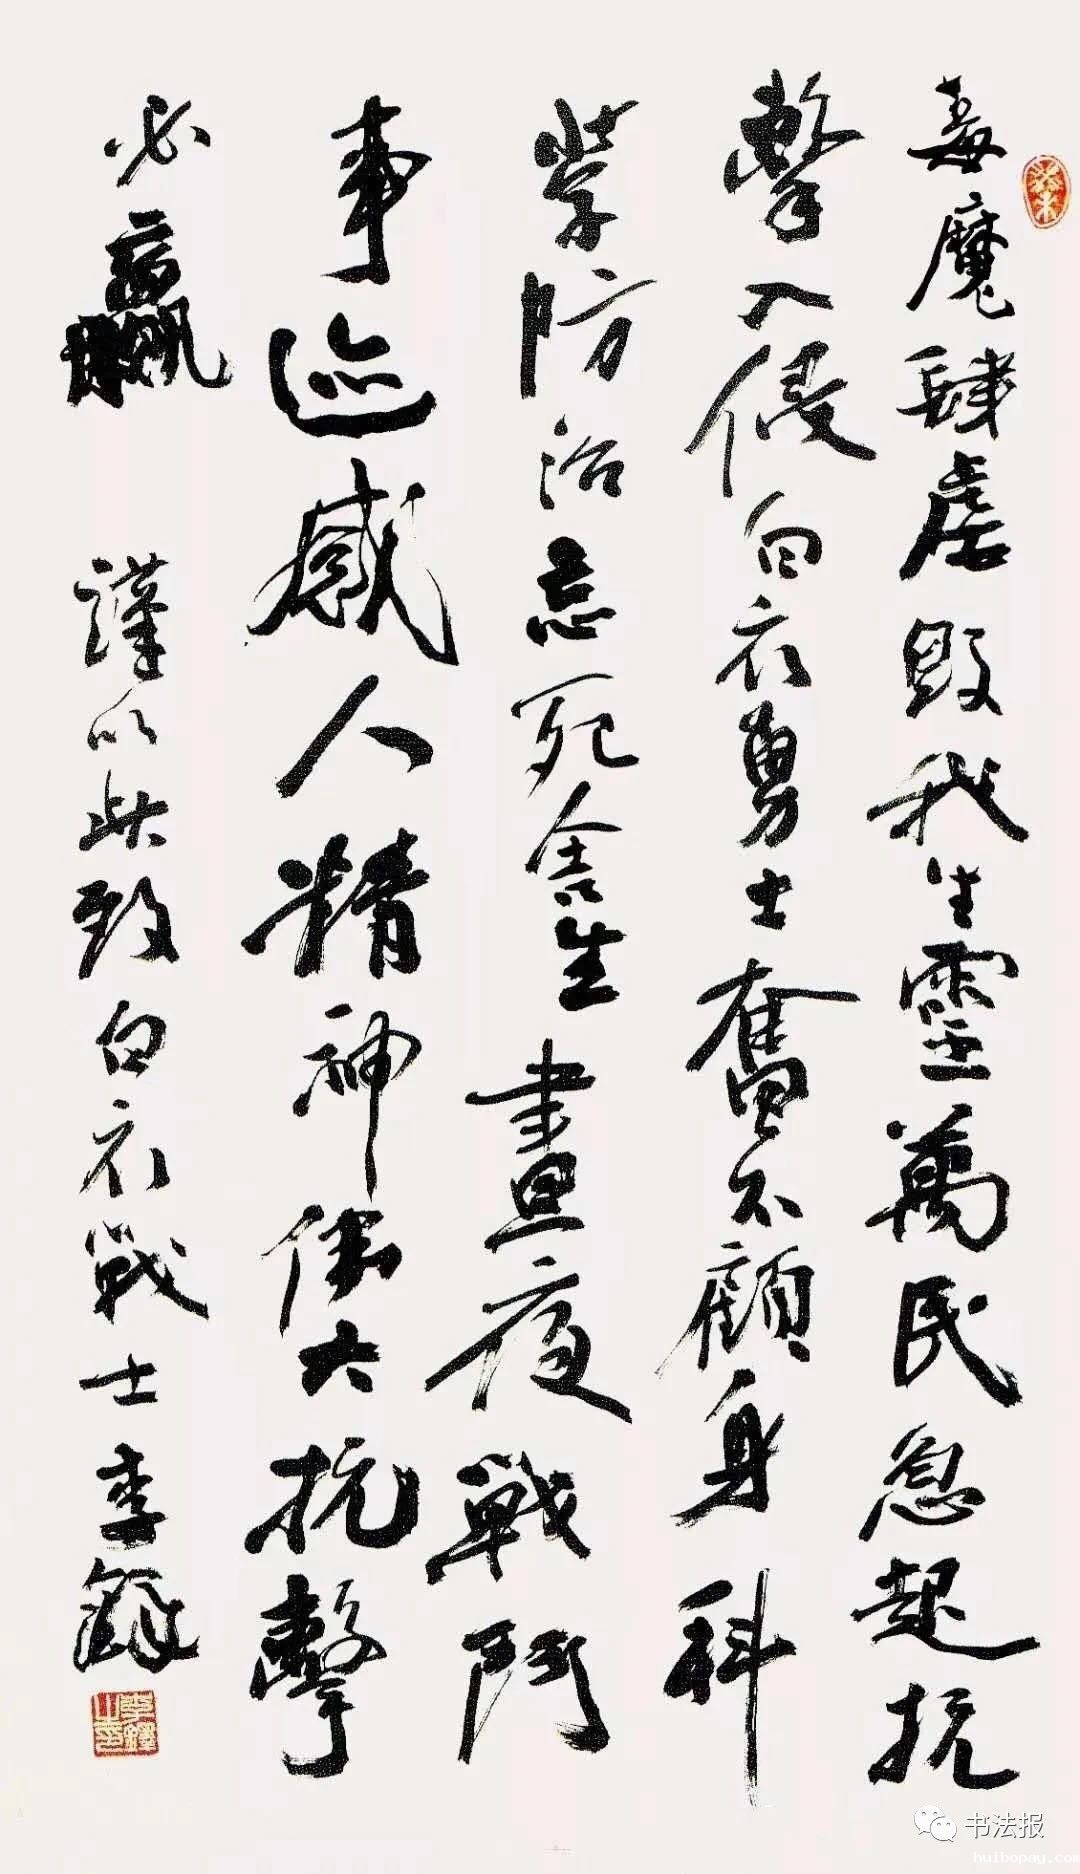 毒魔肆虐毁我生靈萬民急起抗
擊入侵白衣勇士奮不顧身科
學防治忘死舍生晝夜戰鬥
事迹感人精神偉大抗擊
必贏
謹以此致白衣戰士李鐸
李鐸之印
书法报
huibopay.com